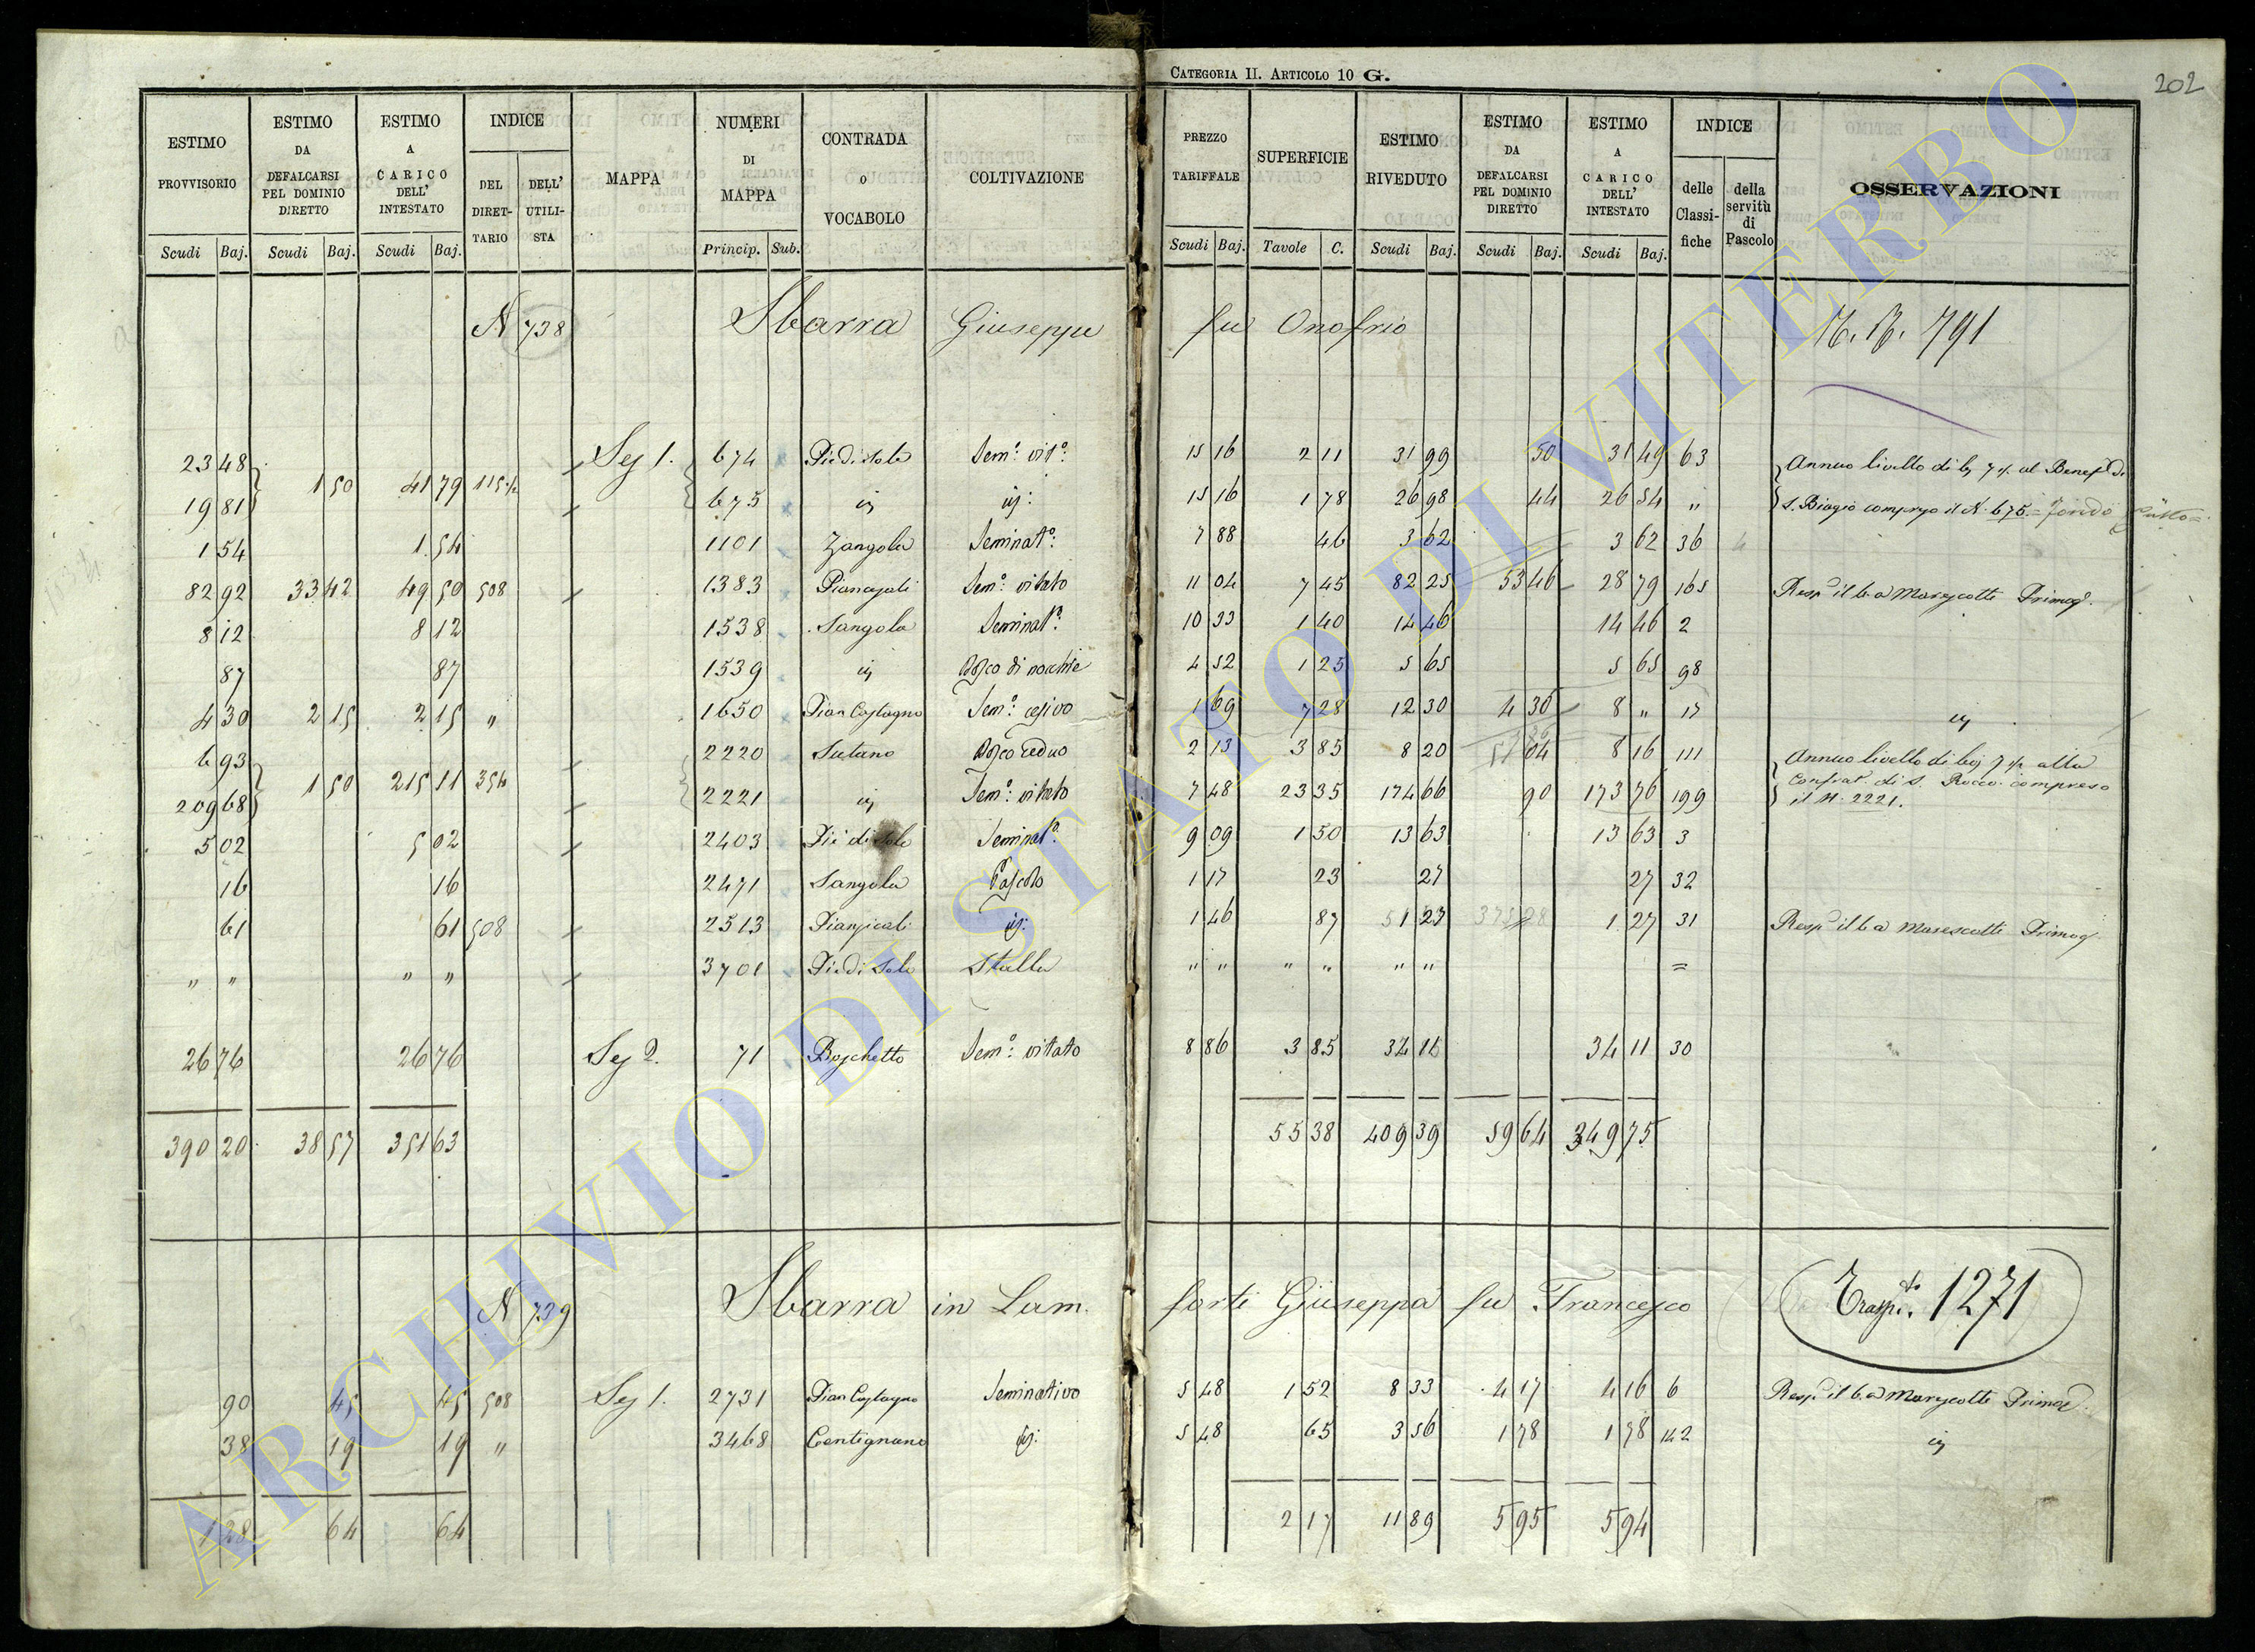 CATEGORIA II. ARTICOLO 10 G.
202
ESTIMO PROVVISORIO | ESTIMO DA DEFALCARSI PEL DOMINIO DIRETTO | ESTIMO A CARICO DELL' INTESTATO | INDICE DEL DIRET-TARIO | DELL' UTILI-STA | MAPPA | NUMERI DI MAPPA | CONTRADA O VOCABOLO | COLTIVAZIONE | PREZZO TARIFFALE | SUPERFICIE | ESTIMO RIVEDUTO | ESTIMO DA DEFALCARSI PEL DOMINIO DIRETTO | ESTIMO A CARICO DELL' INTESTATO | INDICE delle Classi-fiche | della servitù di Pascolo | OSSERVAZIONI
Scudi Baj. Scudi Baj. Scudi Baj. Princip. Sub. Scudi Baj. Tavole C. Scudi Baj. Scudi Baj. Scudi Baj.
N 738 Sbarra Giuseppe fu Onofrio 791
23 48 Sez 1. 674 Piedisole Sem.o vit.o 15 16 2 11 31 99 50 31 49 63 Annuo livello di bj 7 ½ al Benef. di
1 50 41 79 115 ½
19 81 675 ij ij: 15 16 1 78 26 98 44 26 54 " S. Biagio compreso il N. 675. = fondo
1 54 1 54 1101 Zangola Seminat.o 7 88 46 3 62 3 62 36
82 92 33 42 49 50 508 1383 Piancajali Sem.o vitato 11 04 7 45 82 25 53 46 28 79 165 Resp. il b. a Marescotti Primog.
8 12 8 12 1538 Sangola Seminat.o 10 33 1 40 14 46 14 46 2
87 87 1539 ij Bosco di nocchie 4 52 1 25 5 65 5 65 98
4 30 2 15 2 15 " 1650 Pian Castagno Sem.o cesivo 1 69 7 28 12 30 4 30 8 " 17 ij
6 93 2220 Sutano Bosco ceduo 2 13 3 85 8 20 04 8 16 111 Annuo livello di bj 7 ½ alla
1 50 215 11 354 Confrat. di S. Rocco compreso
209 68 2221 ij Sem.o vitato 7 48 23 35 174 66 90 173 76 199 il N. 2221.
5 02 5 02 2403 Piè di sole Seminat.o 9 09 1 50 13 63 13 63 3
16 16 2471 Sangola Pascolo 1 17 23 27 27 32
61 61 508 2513 Pianzicali ij: 1 46 87 1 23 1 27 31 Resp. il b a Marescotti Primog.
" " " " 3701 Piedi Sole Stalla " " " " " " =
26 76 26 76 Sez 2. 71 Boschetto Sem.o vitato 8 86 3 85 34 11 34 11 30
390 20 38 57 351 63 55 38 409 39 59 64 349 75
N 739 Sbarra in Lam. forti Giuseppa fu Francesco Trasp.to 1271
90 45 45 508 Sez 1. 2731 Pian Castagno Seminativo 5 48 1 52 8 33 4 17 4 16 6 Resp. il b. a Marescotti Primog.
38 19 19 " 3468 Centignano ij: 5 48 65 3 56 1 78 1 78 142 ij
1 28 64 64 2 17 11 89 5 95 5 94
ARCHIVIO DI STATO DI VITERBO